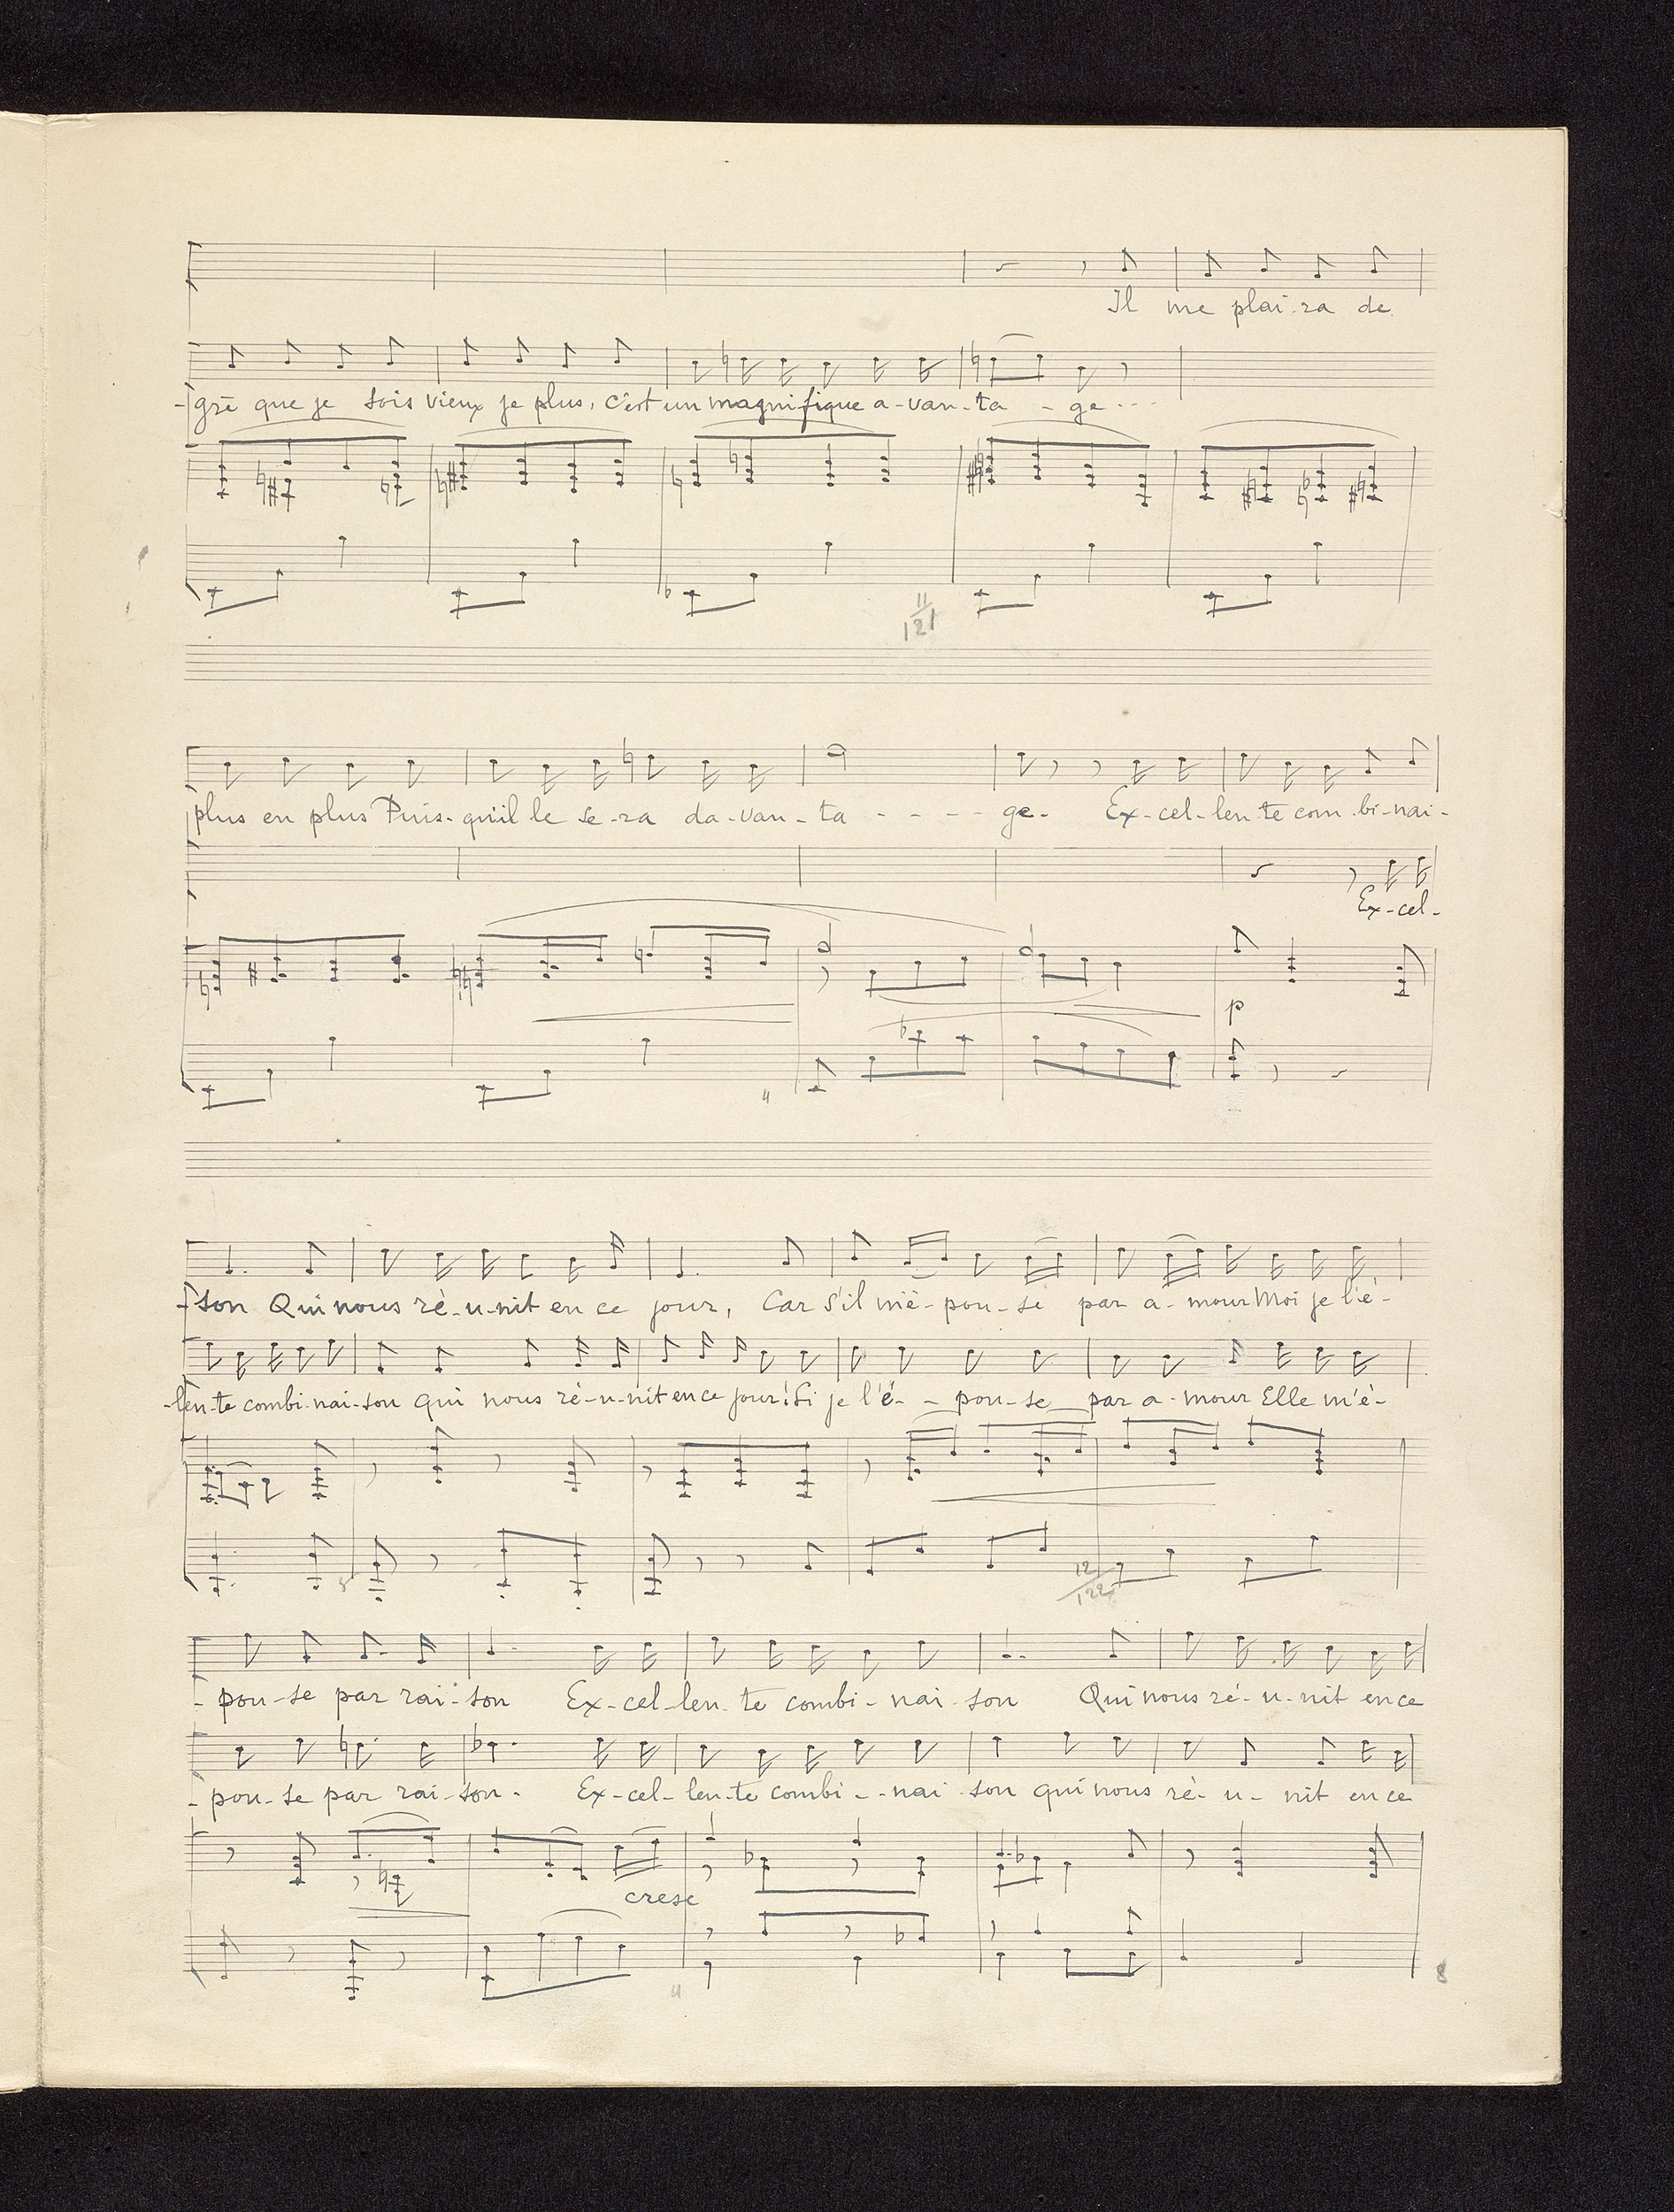 Il me plai-ra de
- gré que je sois vieux je plus, c'est un magnifique a-van-ta - ge...
11
121
plus en plus Puis-qu'il le se-ra da-van-ta - - - - ge. Ex-cel-len-te com-bi-nai-
Ex-cel-
p
4
- son Qui nous ré-u-nit en ce jour, Car s'il m'é-pou-se par a-mour Moi je l'é-
-len-te combi-nai-son qui nous ré-u-nit en ce jour! Si je l'é- - pou-se par a-mour Elle m'é-
12
122
- pou-se par rai-son Ex-cel-len-te combi-nai-son Qui nous ré-u-nit en ce
- pou-se par rai-son. Ex-cel-len-te combi - -nai-son qui nous ré-u-nit en ce
cresc
4
8